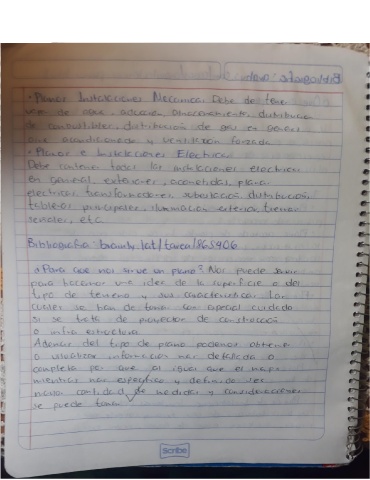 • Planos Instalaciones Mecanica: Debe de tener
de combustibles, distribución de gas en general
aire acondicionado y ventilación forzada
• Planos e Instalaciones Electricas
Debe contener todas las instalaciones electricas
en general, exteriores, acometidas, planta
electricas, transformadores, subestación distribución
tableros principales, iluminación exterior, tierras
señales, etc.
Bibliografia: brainly.lat/tarea/865406
• Para que nos sirve un plano? Nos puede servir
para hacernos una idea de la superficie o del
tipo de terreno y sus caracteristicas las
cuales se han de tomar con especial cuidado
si se trata de proyectos de construcción
o infra estructura
Ademas del tipo de plano podemos obtener
o visualizar información mas detallada o
completa por que al igual que el mapa
mientras mas especifico y definido sea
mayor cantidad de medidas y consideraciones
se puede tomar
Scribe